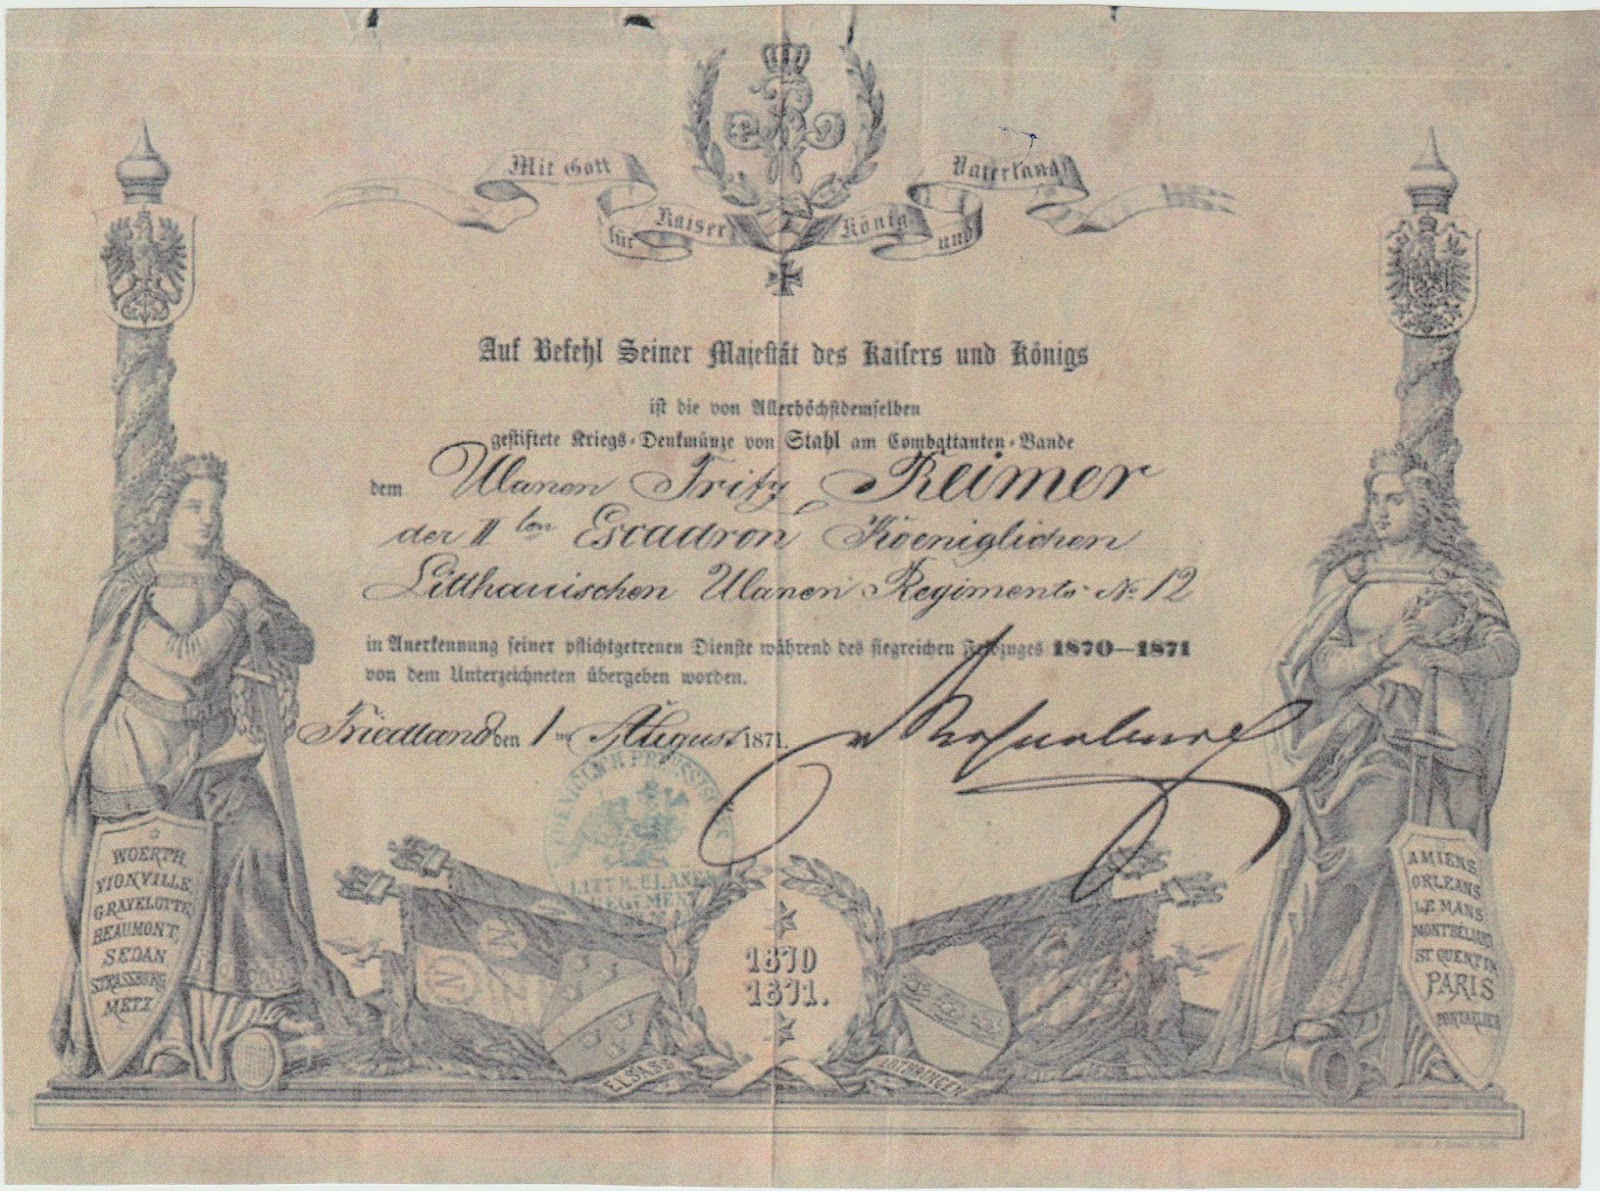 Mit Gott
für Kaiser
und König
Vaterland
Auf Befehl Seiner Majestät des Kaisers und Königs
ist die von Allerhöchstdemselben
gestiftete Kriegs-Denkmünze von Stahl am Combattanten-Bande
dem Ulanen Fritz Reimer
der II ten Escadron, Koeniglichen
Litthauischen Ulanen Regiments No 12
in Anerkennung seiner pflichtgetreuen Dienste während des siegreichen Feldzuges 1870—1871
von dem Unterzeichneten übergeben worden.
Friedland den 1 ten August 1871.
LITTH. ULANEN
REGIMENT
WOERTH,
VIONVILLE,
GRAVELOTTE,
BEAUMONT,
SEDAN
STRASSBURG,
METZ
N
N
1870
1871.
ELSASS
LOTHRINGEN
AMIENS,
ORLEANS
LE MANS
MONTBELIARD
ST QUENTIN
PARIS
PONTARLIER